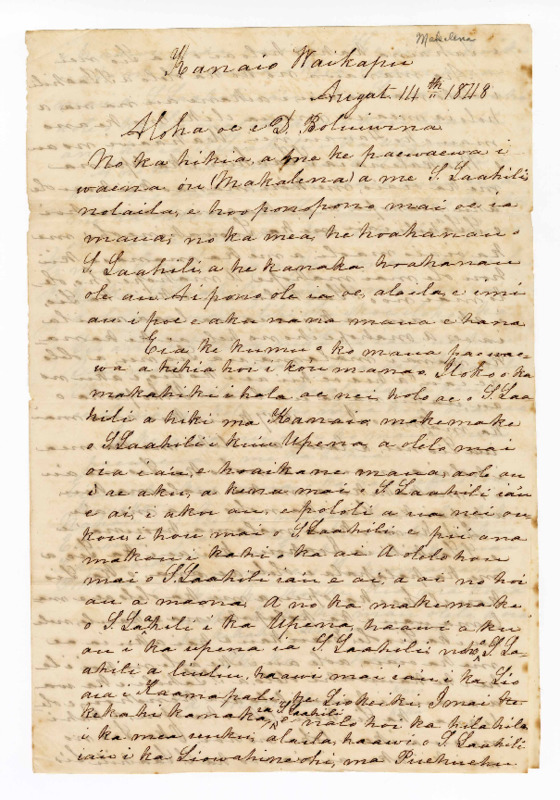 Makelena
Kanaio Waikapu
Augat. 14th 1848
Aloha oe e D. Boluiwina
No ka hihia, a me ke paewaewa i
waena o'u (Makalena) a me S. Laahili,
nolaila, e hooponopono mai oe ia
maua; no ka mea, he hoahanau o
S. Laahili, a he kanaka hoahanau
ole au. Ai pono ole ia oe, alaila e imi
au i poe e aku nana maua e hana
Eia ke kumu o ko maua paewae-
wa a hihia hoi i ko'u manao. Iloko o ka
makahiki i hala ae nei holo ae o S. Laa
hili a hiki ma Kanaio, makemake
o S. Laahili i ku'u Upena, a olelo mai
oia ia'u, e hoaikane maua, aole au
i ae aku, a kena mai o S. Laahili ia'u
e ai, i aku au, e pololi a ua nei ou-
kou, i hou mai o S. Laahili e pii ana
makou i kahi o ka ai. A olelo hou
mai o S. Laahili ia'u e ai, a ai no hoi
au a maona, A no ka makemake
o S. Laahili i ka Upena, haawi aku
au i ka upena ia S. Laahili; no S. La-
ahili a liuliu, haawi mai ia'u i ka Lio
aia i Kaanapali, he Liokeiki, I mai ke-
kekahi kanaka ia S. Laahili nalo hoi ka hilahila
i ka mea uuku, alaila, haawi o S. Laahili
ia'u i ka Liowahine ohi, ma Puehuehu